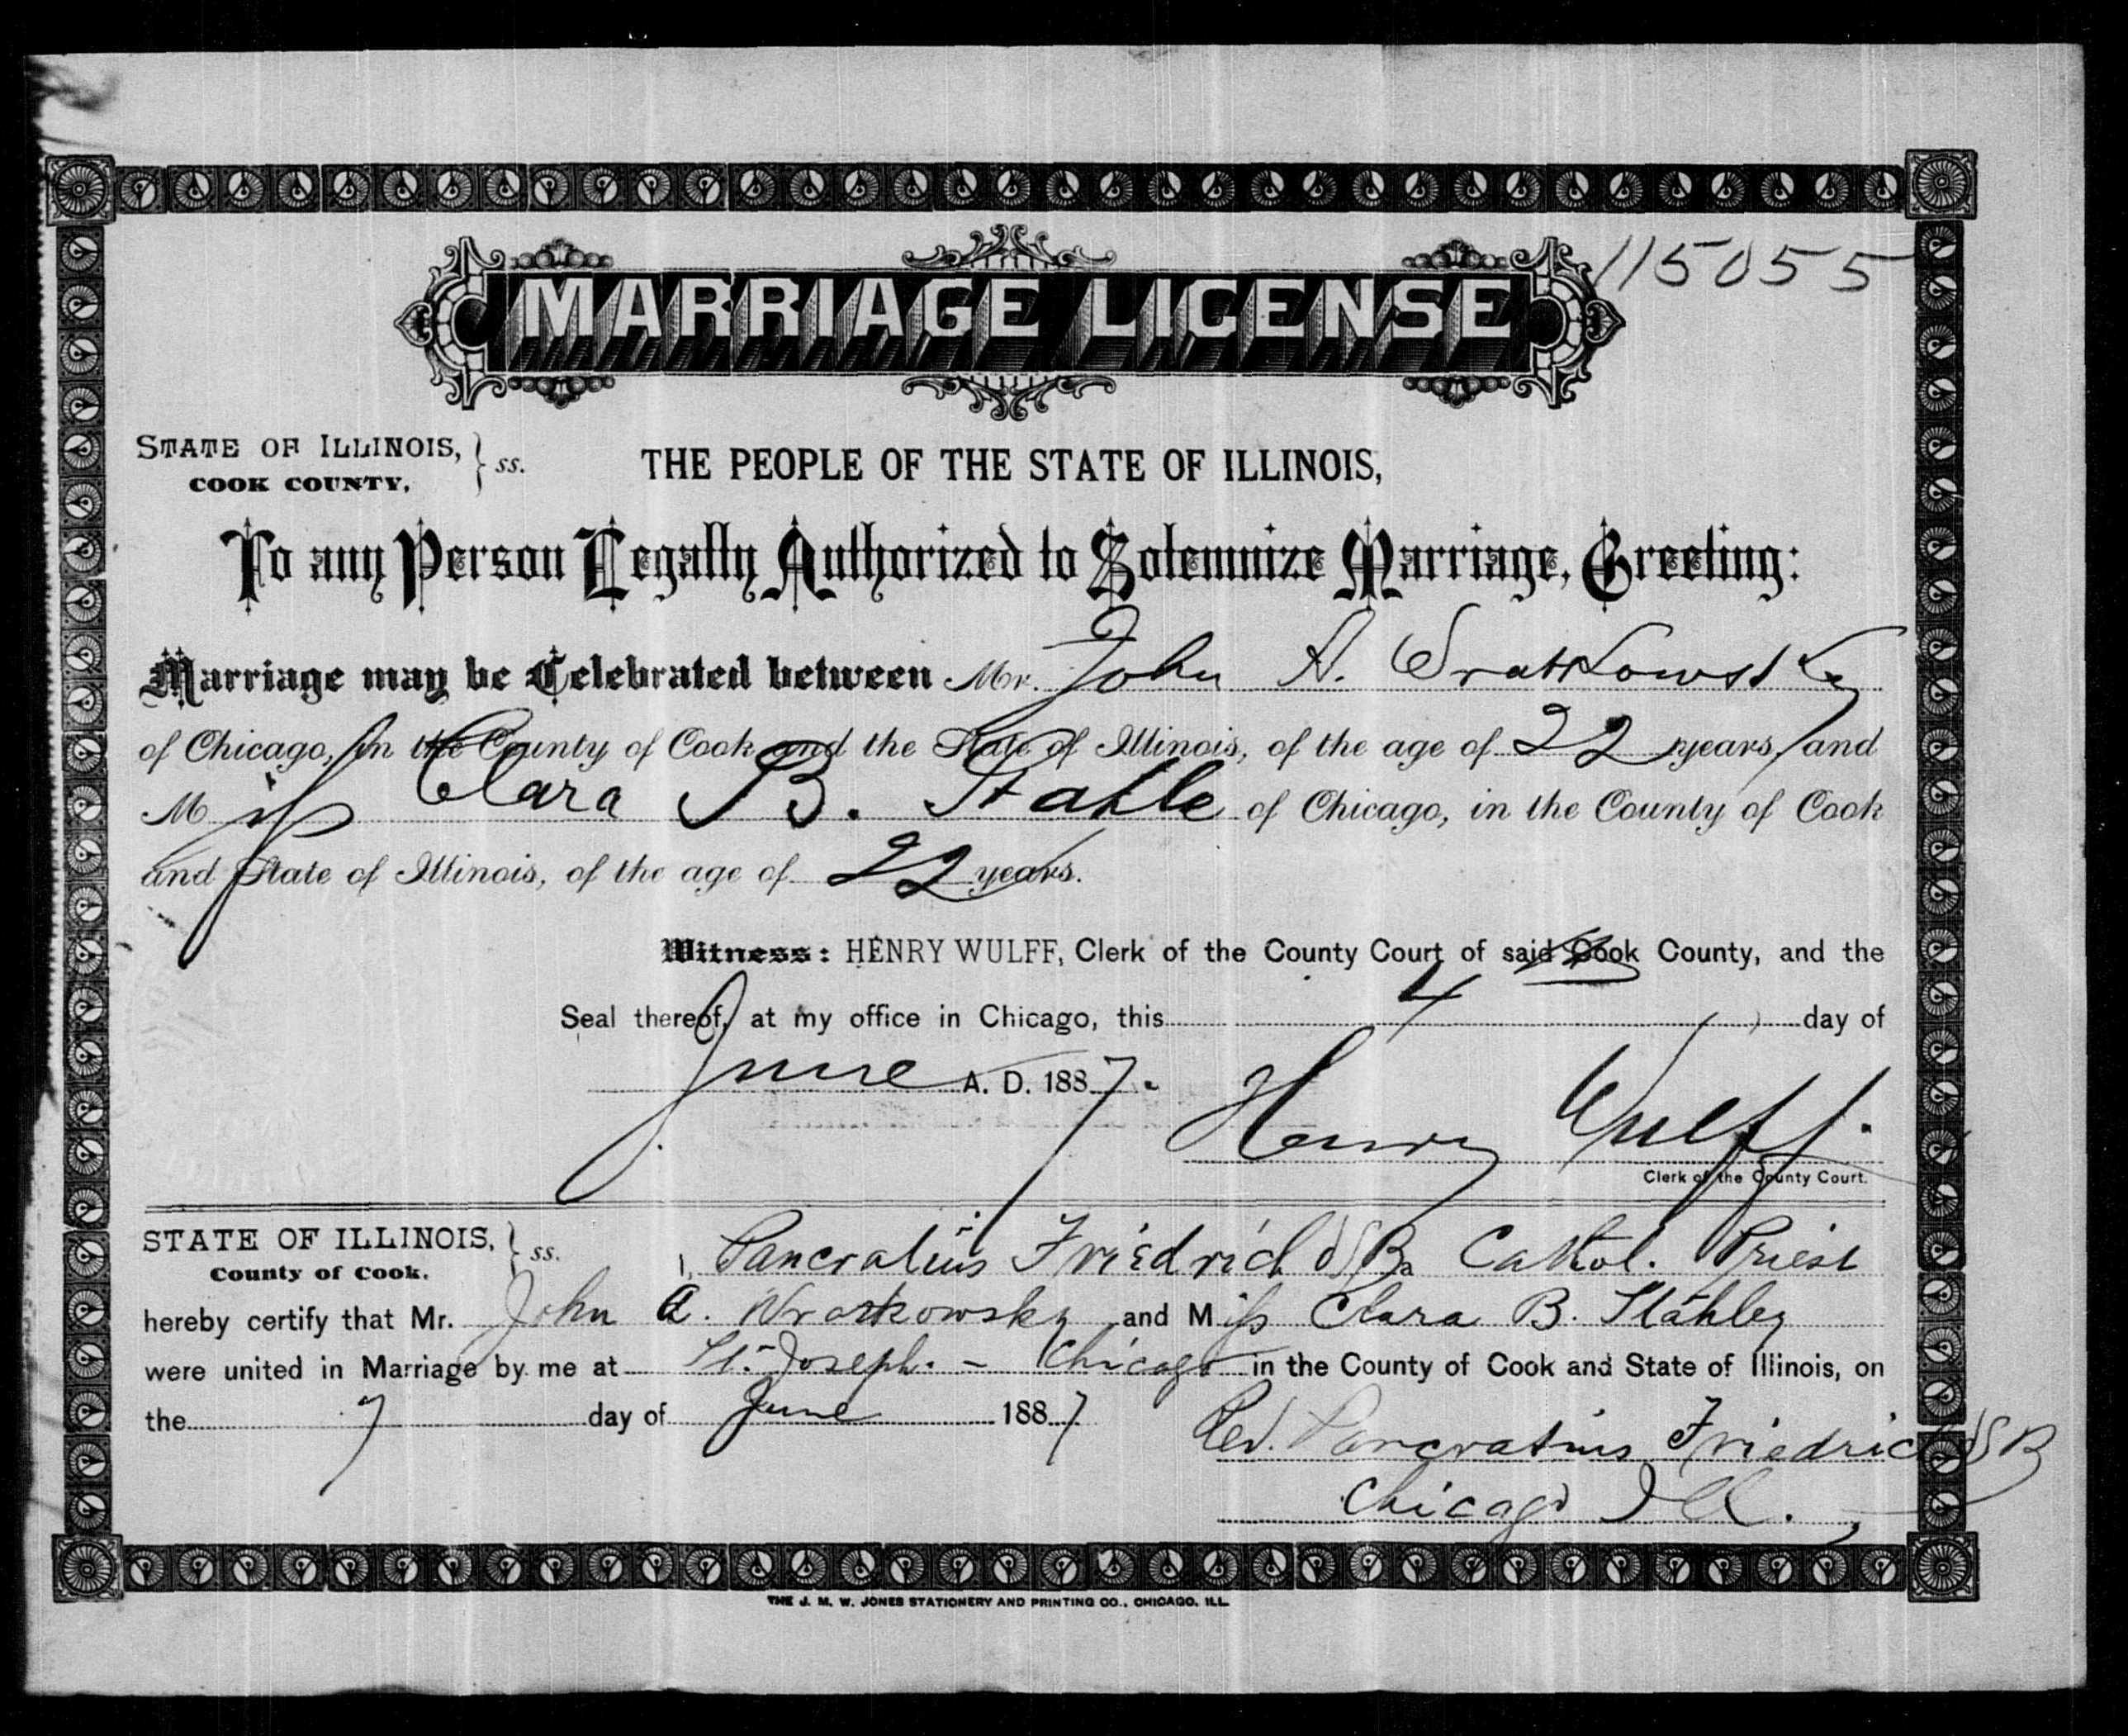 115055
MARRIAGE LICENSE
STATE OF ILLINOIS, } ss. THE PEOPLE OF THE STATE OF ILLINOIS,
COOK COUNTY,
To any Person Legally Authorized to Solemnize Marriage, Greeting:
Marriage may be Celebrated between Mr. John A.
of Chicago, in the County of Cook and the State of Illinois, of the age of 22 years, and
Miss Clara B. Stahle of Chicago, in the County of Cook
and State of Illinois, of the age of 22 years.
Witness: HENRY WULFF, Clerk of the County Court of said Cook County, and the
Seal thereof, at my office in Chicago, this 4th day of
June A. D. 1887.
Henry Wulff.
Clerk of the County Court.
STATE OF ILLINOIS, } ss. I, Pancratius Friedrich OSB a Cathol. Priest
County of Cook.
hereby certify that Mr. John A. Wratkowsky and Miss Clara B. Stahley
were united in Marriage by me at St. Joseph. - Chicago in the County of Cook and State of Illinois, on
the 7 day of June 1887
Rev. Pancratius Friedrich OSB
Chicago Ill.
THE J. M. W. JONES STATIONERY AND PRINTING CO., CHICAGO, ILL.